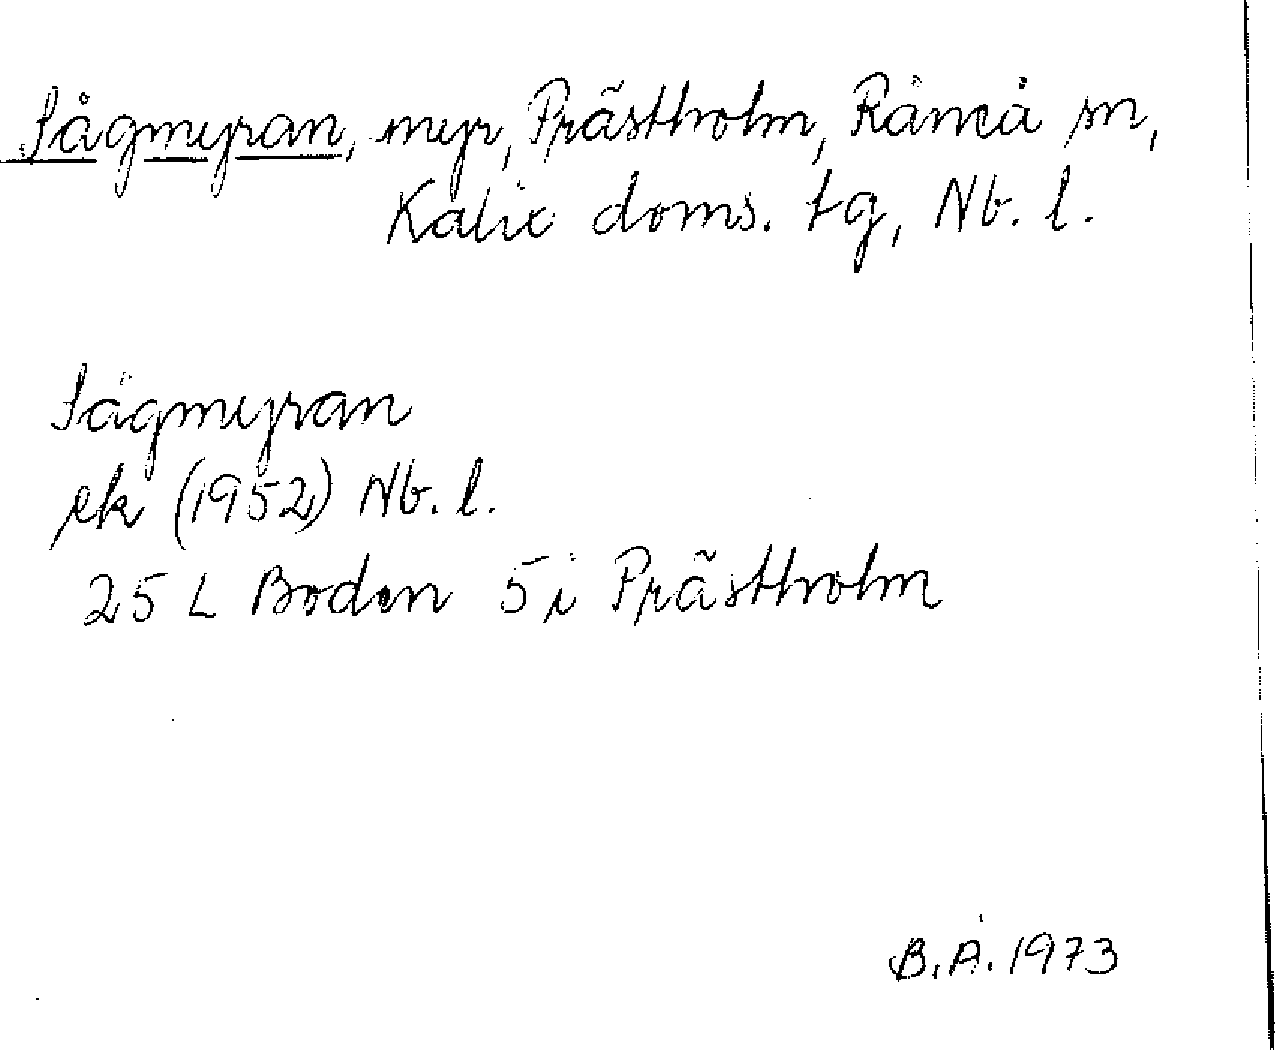 Sågmyran, myr, Prästholm, Råneå sn,
Kalix doms. tg, Nb. l.
Sågmyran
ek (1952) Nb. l.
25 L Boden 5 i Prästholm
B.Å. 1973